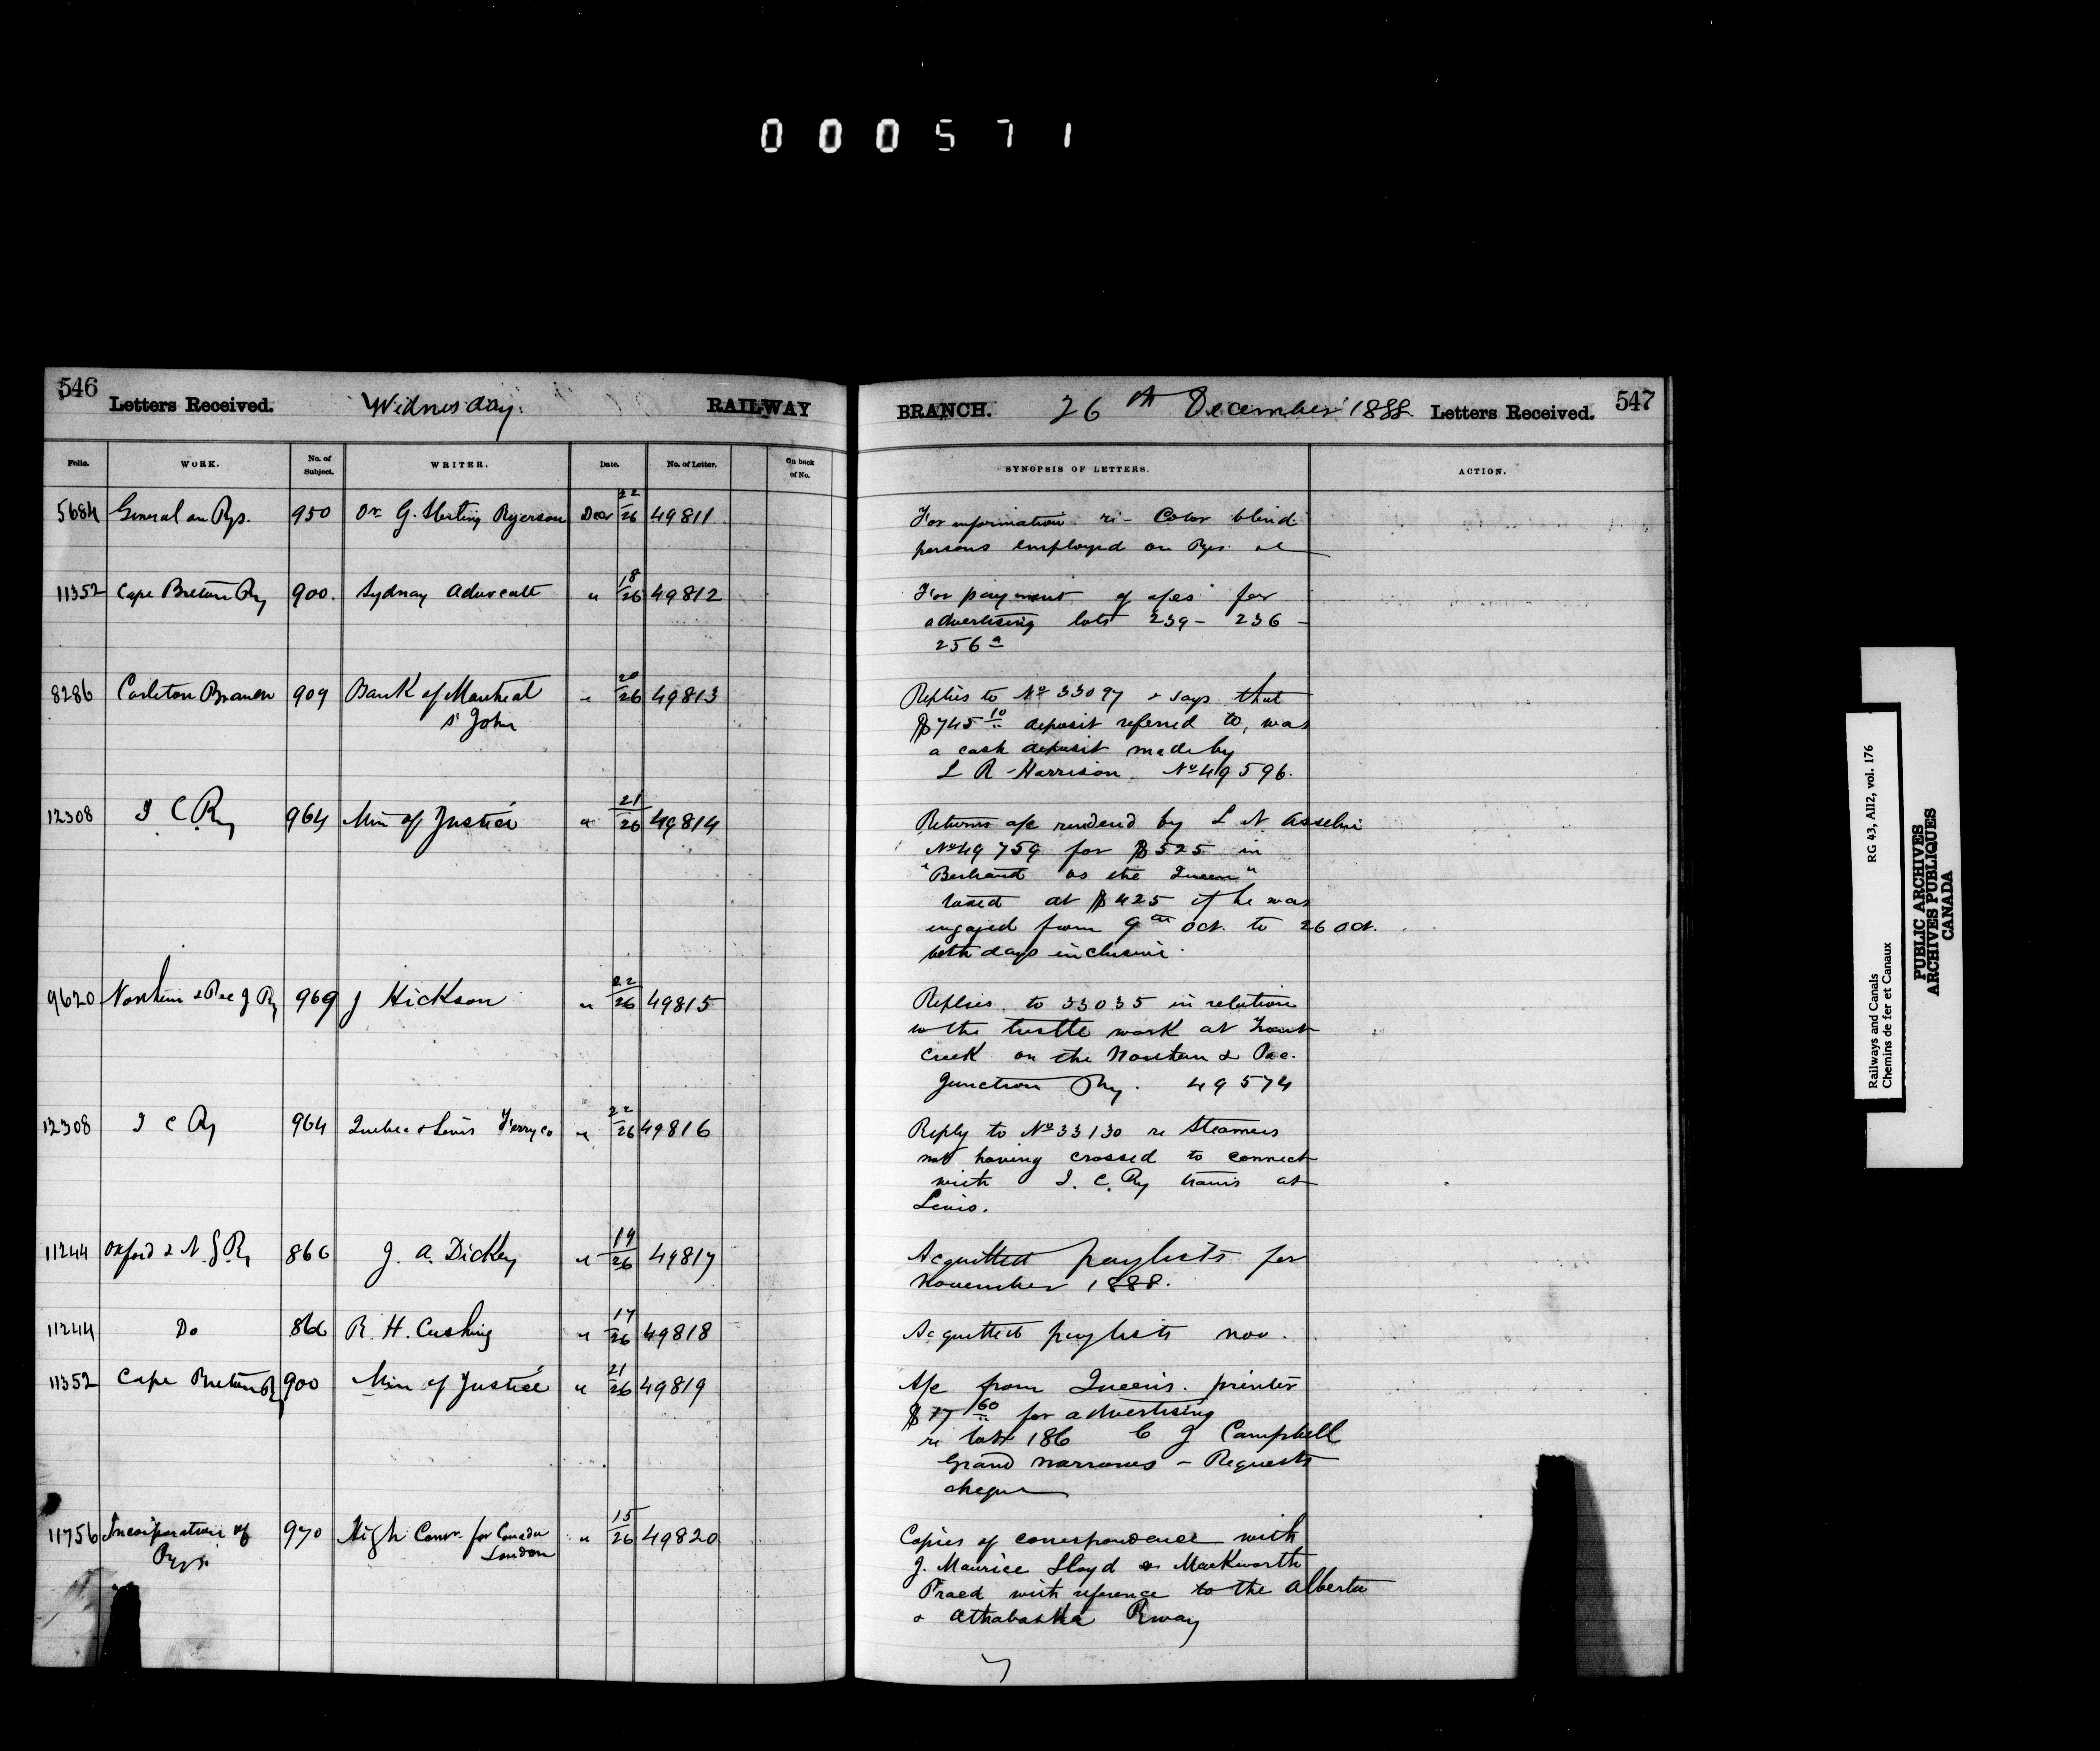 000571
546
Letters Received.
Wednesday.
RAILWAY
BRANCH.
26th December 1888.
Letters Received.
547
Folio.
WORK.
No. of Subject.
WRITER.
Date.
No. of Letter.
On back of No.
SYNOPSIS OF LETTERS.
ACTION.
5684 General on Rys. 950 Dr G. Sterling Ryerson Decr 22/26 49811
For information re- Color blind
persons employed on Rys.
11352 Cape Breton Ry 900. Sydney Advocate " 18/26 49812
For payment of a/cs for
advertising lots 239 - 236 -
256a
8286 Carleton Branch 909 Bank of Montreal " 20/26 49813
St John
Replies to No 33097 & says that
$745 10 deposit referred to, was
a cash deposit made by
L R Harrison. No 49596.
12308 I C Ry 964 Min of Justice " 21/26 49814
Returns a/c rendered by L N Asselin
No 49759 for $525 in
"Bertrand vs the Queen"
taxed at $425 if he was
engaged from 9th Oct. to 26 Oct.
both days inclusive.
9620 Northern & Pac J Ry 969 J Hickson " 22/26 49815
Replies to 33035 in relation
to the trestle work at
Creek on the Northern & Pac.
Junction Ry. 49574
12308 I C Ry 964 Quebec & Levis Ferry Co " 22/26 49816
Reply to No 33130 re Steamers
not having crossed to connect
with I. C. Ry trains at
Levis.
11244 Oxford & N. G. Ry 866 J. A. Dickey " 19/26 49817
Acquitted paylists for
November 1888.
11244 Do 866 R. H. Cushing " 17/26 49818
Acquitted paylists nov.
11352 Cape Breton Ry 900 Min of Justice " 21/26 49819
A/c from Queen's printer
$17 60 for advertising
re lot 186 C J Campbell
Grand Narrows - Requests
cheque
11756 Incorporation of 970 High Comr. for Canada " 15/26 49820
Rys. London
Copies of correspondence with
J. Maurice Lloyd & Mackworth
Praed with reference to the Alberta
& Athabaska Rway
Railways and Canals RG 43, AII2, vol. 176
Chemins de fer et Canaux
PUBLIC ARCHIVES
ARCHIVES PUBLIQUES
CANADA